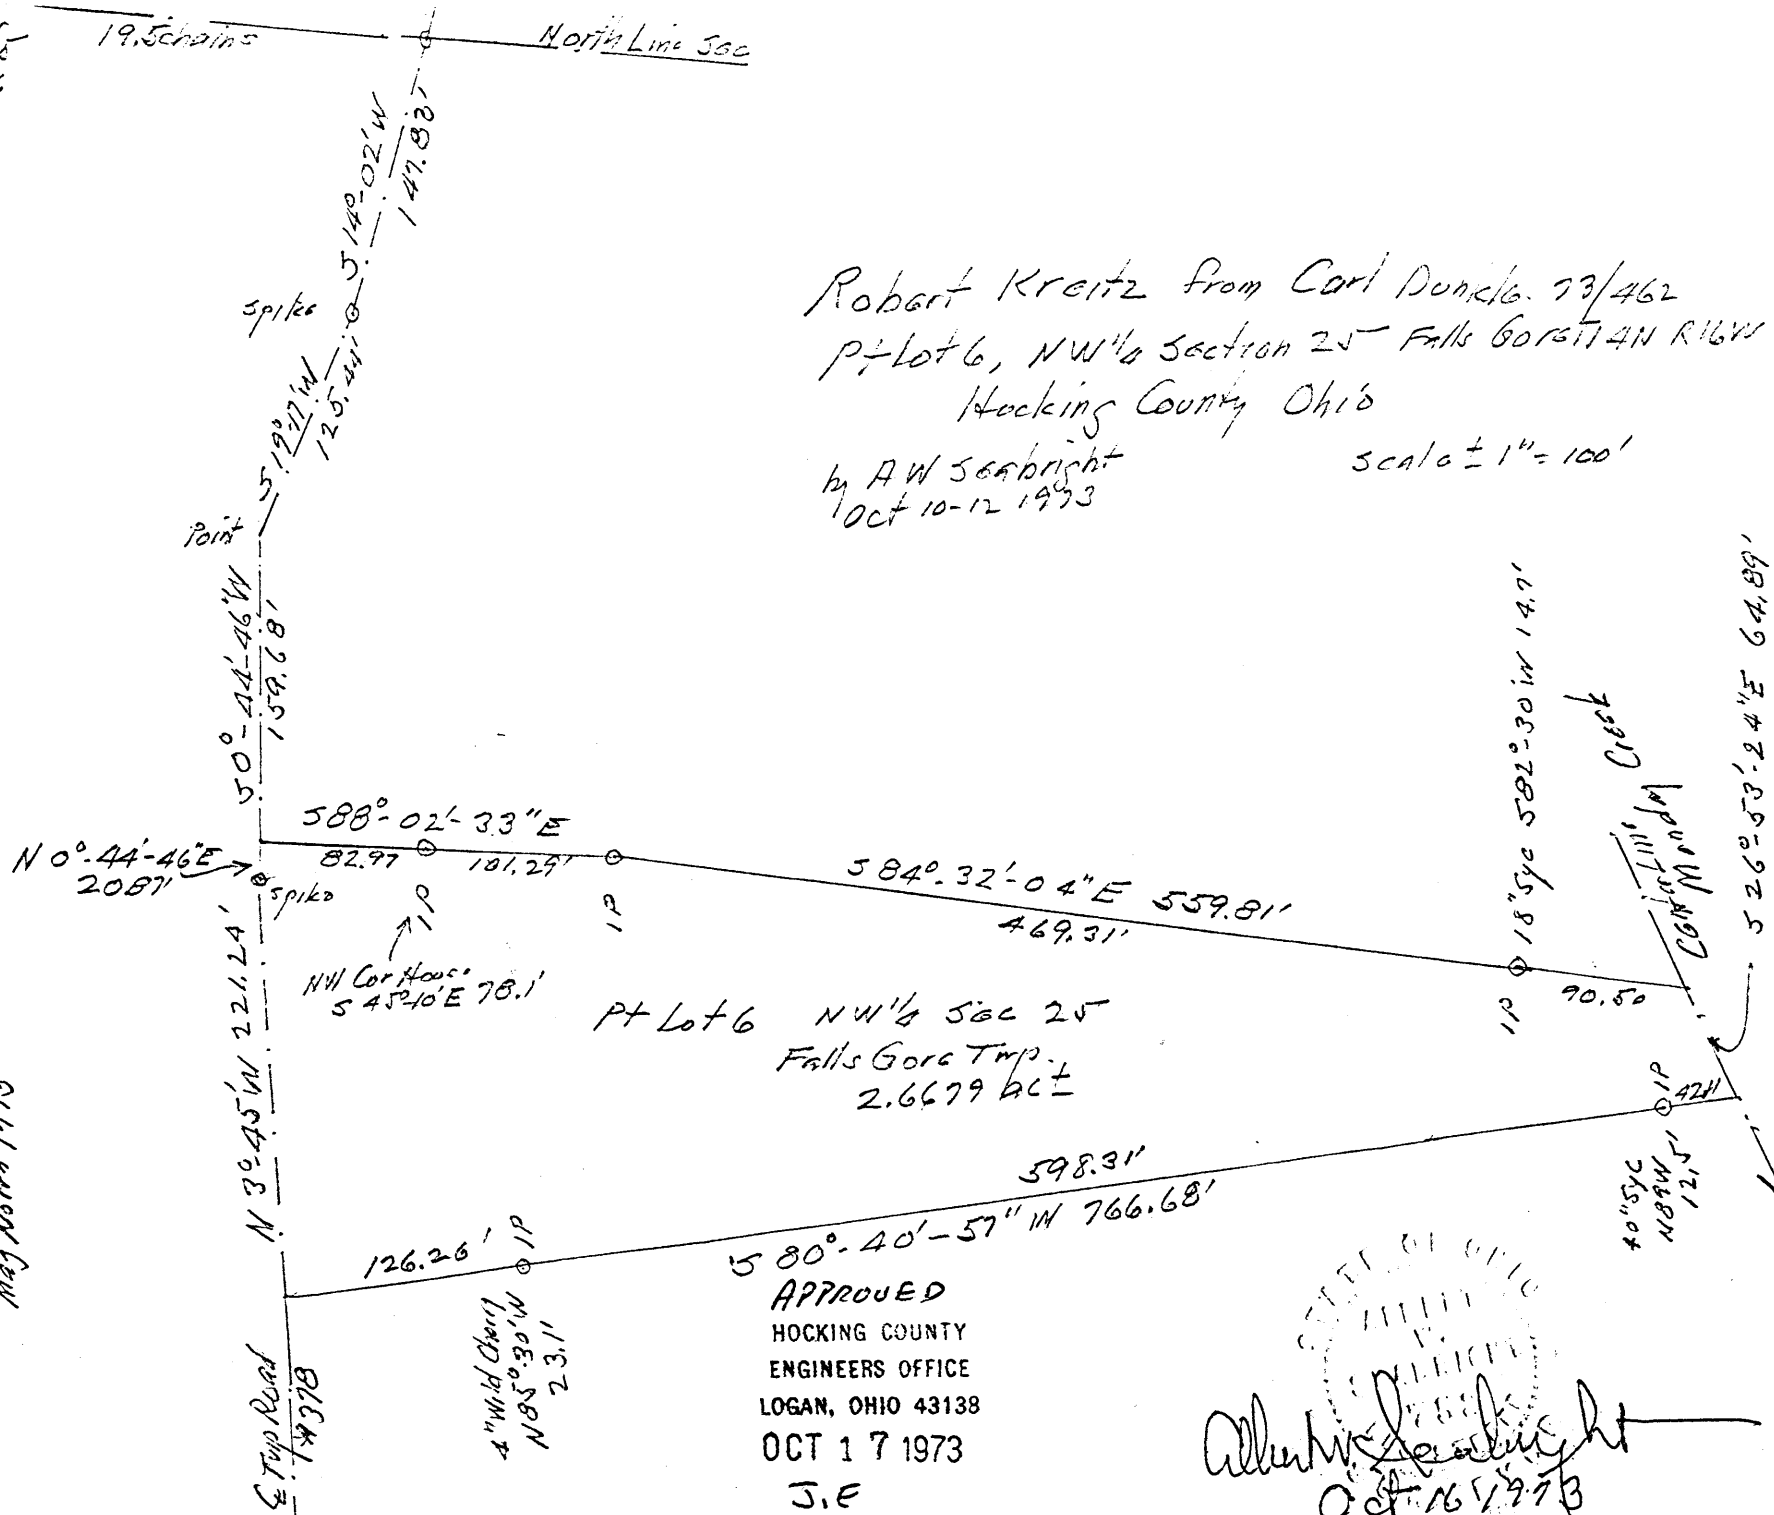 19.5chains
North Line Sec
S 14°-02' W
147.83'
spike
S 19°-17' W
125.44'
Point
Robert Kreitz from Carl Dunkle. 73/462
Pt Lot 6, NW¼ Section 25 Falls Gore T14N R16W
Hocking County Ohio
by AW Seabright
Oct 10-12 1973
Scale ± 1" = 100'
S 0°-44'-46" W
159.68'
S 88°-02'-33" E
82.97
101.29'
N 0°-44'-46" E
20.87'
spike
IP
IP
NW Cor House
S 45°-10' E 78.1'
S 84°-32'-04" E 559.81'
469.31'
18" Syc S 82°-30' W 14.7'
IP
90.50
Center line
Monday Creek
S 26°-53'-24" E 64.89'
N 3°-45' W 221.24'
Pt Lot 6 NW¼ Sec 25
Falls Gore Twp.
2.6679 ac ±
Mag North 1973
IP
42.11
40" Syc
N 89 W
12.5'
598.31'
S 80°-40'-57" W 766.68'
126.26'
IP
4" Wild Cherry
N 85°-30' W
23.1'
℄ Twp Road
#378
APPROVED
HOCKING COUNTY
ENGINEERS OFFICE
LOGAN, OHIO 43138
OCT 17 1973
J.E
STATE OF OHIO
Albert W Seabright
Oct 16 1973